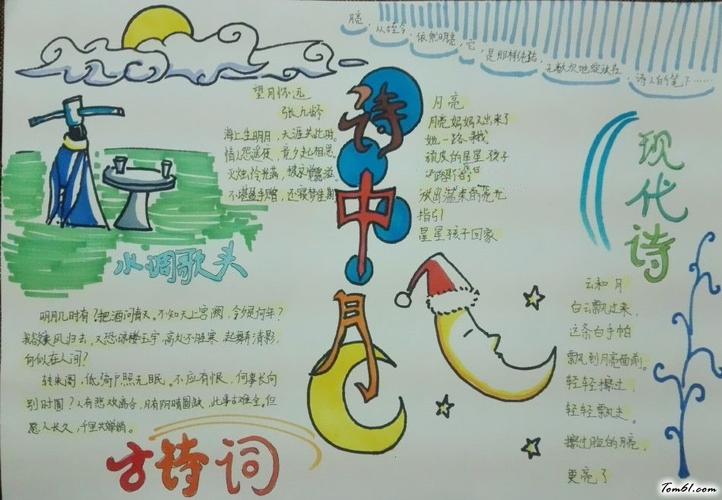 从古至今,依然明亮,它,是那样体贴,无数次地绽放在,诗人的笔下……
望月怀远
张九龄
海上生明月,天涯共此时。
情人怨遥夜,竟夕起相思。
灭烛怜光满,披衣觉露滋
不堪盈手赠,还寝梦佳期
诗中月
月亮
月亮妈妈又出来了
她一路寻找
顽皮的星星孩子
放出温柔的亮光
指引
星星孩子回家
现代诗
云和月
白云飘过来,
这条白手帕
飘到月亮面前。
轻轻擦过,
轻轻飘走。
擦过脸的月亮,
更亮了
水调歌头
明月几时有?把酒问青天。不知天上宫阙,今夕是何年?
我欲乘风归去,又恐琼楼玉宇,高处不胜寒,起舞弄清影,
何似在人间?
转朱阁,低绮户照无眠。不应有恨,何事长向
别时圆?人有悲欢离合,月有阴晴圆缺,此事古难全。但
愿人长久,千里共婵娟。
古诗词
Tom61.com